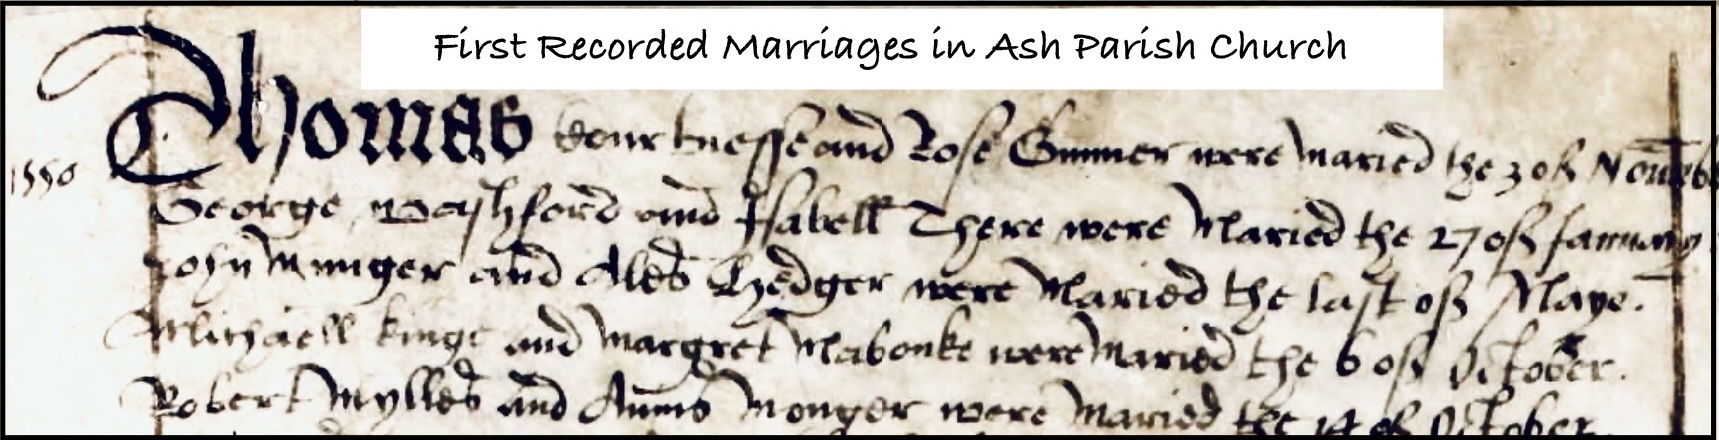 First Recorded Marriages in Ash Parish Church
Thomas and Rose Gunner were maried the 3 of Novēb
1550
George Washford and Isabell There were Maried the 27 of January
John Munger and Ales Hedger were Maried the last of Maye.
Michaell kinge and Margret Mabonke were Maried the 6 of October.
Robert Mylles and Annis Monger were Maried the 14 of October